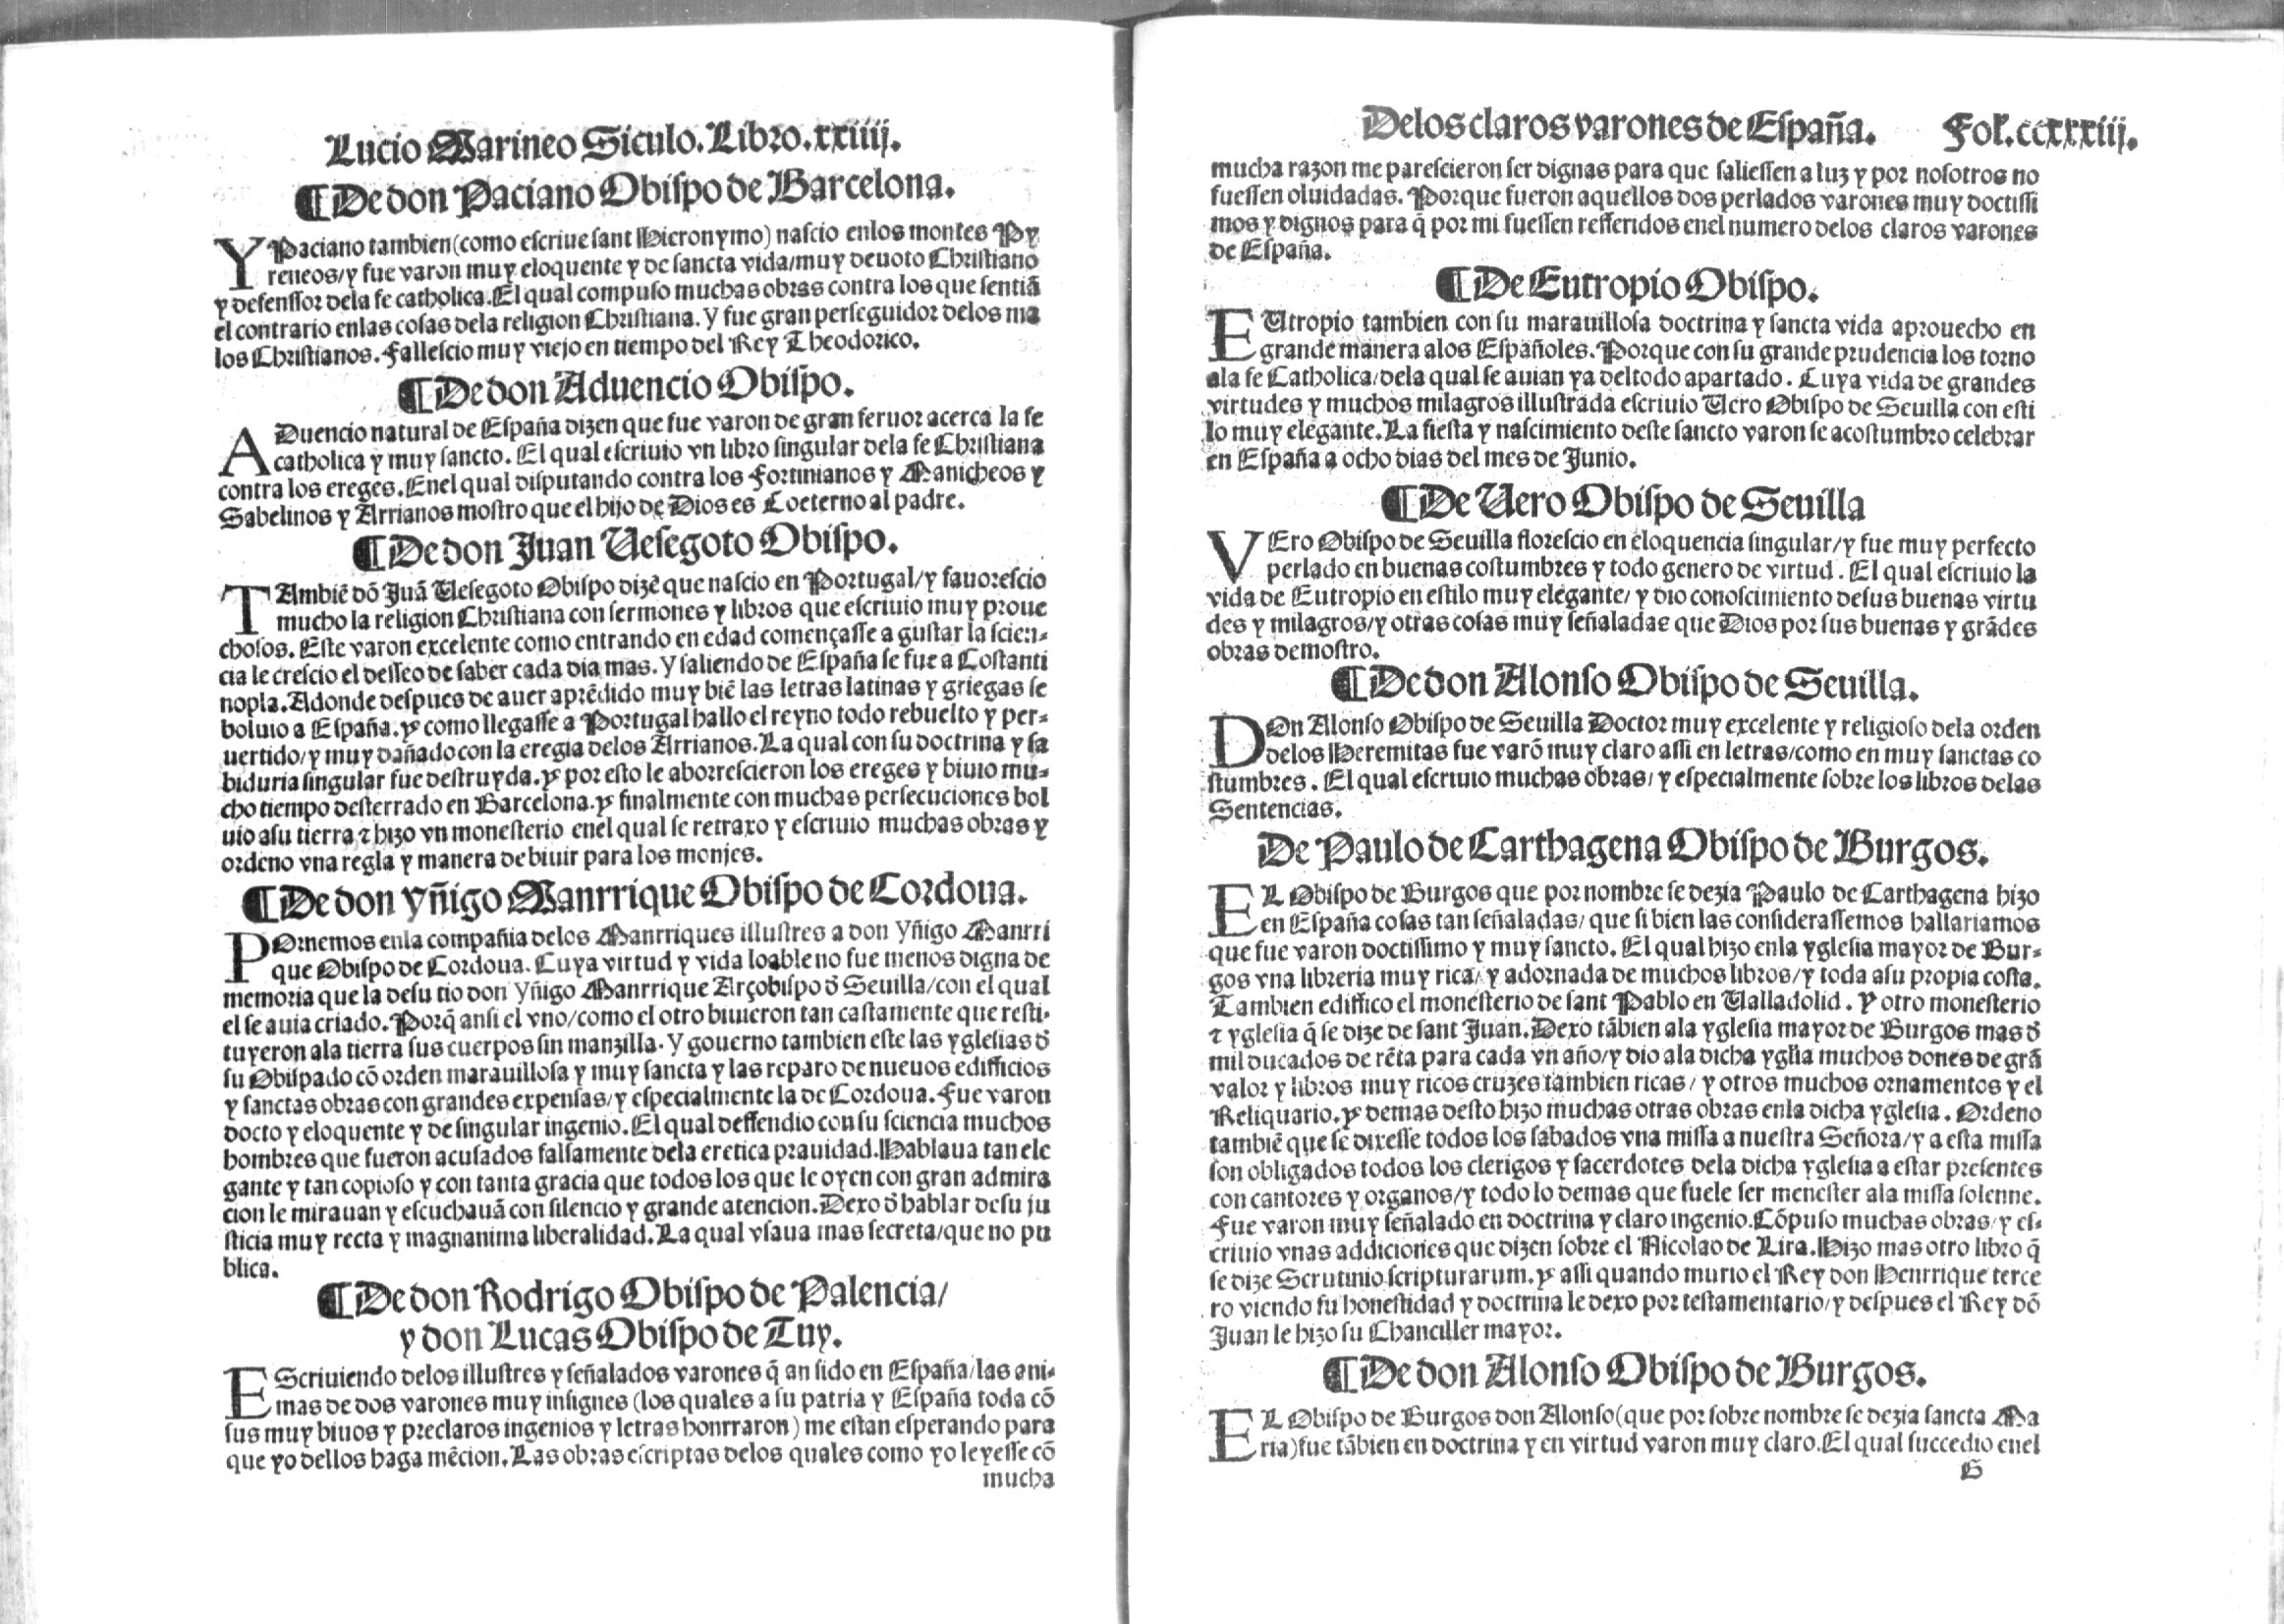 Lucio Marineo Siculo. Libro. xxiiij.
¶De don Paciano Obispo de Barcelona.
Y Paciano tambien (como escriue sant Hieronymo) nascio enlos montes Py
reneos/ y fue varon muy eloquente y de sancta vida/muy deuoto Christiano
y defenssor dela fe catholica. El qual compuso muchas obras contra los que sentiã
el contrario enlas cosas dela religion Christiana. Y fue gran perseguidor delos ma
los Christianos. Fallescio muy viejo en tiempo del Rey Theodorico.
¶De don Aduencio Obispo.
ADuencio natural de España dizen que fue varon de gran feruor acerca la fe
catholica y muy sancto. El qual escriuio vn libro singular dela fe Christiana
contra los ereges. Enel qual disputando contra los Fortinianos y Manicheos y
Sabelinos y Arrianos mostro que el hijo de Dios es Coeterno al padre.
¶De don Juan Uesegoto Obispo.
TAmbiẽ dõ Juã Uesegoto Obispo dizẽ que nascio en Portugal/y fauorescio
mucho la religion Christiana con sermones y libros que escriuio muy proue
chosos. Este varon excelente como entrando en edad començasse a gustar la scien-
cia le crescio el desseo de saber cada dia mas. Y saliendo de España se fue a Costanti
nopla. Adonde despues de auer aprẽdido muy biẽ las letras latinas y griegas se
boluio a España. Y como llegasse a Portugal hallo el reyno todo rebuelto y per-
uertido/y muy dañado con la eregia delos Arrianos. La qual con su doctrina y sa
biduria singular fue destruyda. Y por esto le aborrescieron los ereges y biuio mu-
cho tiempo desterrado en Barcelona. Y finalmente con muchas persecuciones bol
uio asu tierra ⁊ hizo vn monesterio enel qual se retraxo y escriuio muchas obras y
ordeno vna regla y manera de biuir para los monjes.
¶De don Yñigo Manrrique Obispo de Cordoua.
POrnemos enla compañia delos Manrriques illustres a don Yñigo Manrri
que Obispo de Cordoua. Cuya virtud y vida loable no fue menos digna de
memoria que la desu tio don Yñigo Manrrique Arçobispo õ Seuilla/con el qual
el se auia criado. Porq̃ ansi el vno/como el otro biuieron tan castamente que resti-
tuyeron ala tierra sus cuerpos sin manzilla. Y gouerno tambien este las yglesias õ
su Obispado cõ orden marauillosa y muy sancta y las reparo de nueuos edifficios
y sanctas obras con grandes expensas/y especialmente la de Cordoua. Fue varon
docto y eloquente y de singular ingenio. El qual deffendio con su sciencia muchos
hombres que fueron acusados falsamente dela eretica prauidad. Hablaua tan ele
gante y tan copioso y con tanta gracia que todos los que le oyen con gran admira
cion le mirauan y escuchauã con silencio y grande atencion. Dexo õ hablar desu ju
sticia muy recta y magnanima liberalidad. La qual vsaua mas secreta/que no pu
blica.
¶De don Rodrigo Obispo de Palencia/
y don Lucas Obispo de Tuy.
EScriuiendo delos illustres y señalados varones q̃ an sido en España/las ani-
mas de dos varones muy insignes (los quales a su patria y España toda cõ
sus muy biuos y preclaros ingenios y letras honrraron) me estan esperando para
que yo dellos haga mẽcion. Las obras escriptas delos quales como yo leyesse cõ
mucha
Delos claros varones de España. Fol. ccxxxiij.
mucha razon me parescieron ser dignas para que saliessen a luz y por nosotros no
fuessen oluidadas. Porque fueron aquellos dos perlados varones muy doctissi
mos y dignos para q̃ por mi fuessen refferidos enel numero delos claros varones
de España.
¶De Eutropio Obispo.
EUtropio tambien con su marauillosa doctrina y sancta vida aprouecho en
grande manera alos Españoles. Porque con su grande prudencia los torno
ala fe Catholica/dela qual se auian ya deltodo apartado. Cuya vida de grandes
virtudes y muchos milagros illustrada escriuio Uero Obispo de Seuilla con esti
lo muy elegante. La fiesta y nascimiento deste sancto varon se acostumbro celebrar
en España a ocho dias del mes de Junio.
¶De Uero Obispo de Seuilla
VEro Obispo de Seuilla florescio en eloquencia singular/y fue muy perfecto
perlado en buenas costumbres y todo genero de virtud. El qual escriuio la
vida de Eutropio en estilo muy elegante/ y dio conoscimiento desus buenas virtu
des y milagros/y otras cosas muy señaladas que Dios por sus buenas y grãdes
obras demostro.
¶De don Alonso Obispo de Seuilla.
DOn Alonso Obispo de Seuilla Doctor muy excelente y religioso dela orden
delos Heremitas fue varõ muy claro assi en letras/como en muy sanctas co
stumbres. El qual escriuio muchas obras/ y especialmente sobre los libros delas
Sentencias.
De Paulo de Carthagena Obispo de Burgos.
EL Obispo de Burgos que por nombre se dezia Paulo de Carthagena hizo
en España cosas tan señaladas/ que si bien las considerassemos hallariamos
que fue varon doctissimo y muy sancto. El qual hizo enla yglesia mayor de Bur-
gos vna libreria muy rica/ y adornada de muchos libros/y toda asu propia costa.
Tambien edifico el monesterio de sant Pablo en Ualladolid. Y otro monesterio
⁊ yglesia q̃ se dize de sant Juan. Dexo tãbien ala yglesia mayor de Burgos mas õ
mil ducados de rẽta para cada vn año/y dio ala dicha ygl̃ia muchos dones de grã
valor y libros muy ricos cruzes tambien ricas/ y otros muchos ornamentos y el
Reliquario. Y demas desto hizo muchas otras obras enla dicha yglesia. Ordeno
tambiẽ que se dixesse todos los sabados vna missa a nuestra Señora/y a esta missa
son obligados todos los clerigos y sacerdotes dela dicha yglesia a estar presentes
con cantores y organos/y todo lo demas que suele ser menester ala missa solenne.
Fue varon muy señalado en doctrina y claro ingenio. Cõpuso muchas obras/y es-
criuio vnas addiciones que dizen sobre el Nicolao de Lira. Hizo mas otro libro q̃
se dize Scrutinio scripturarum. Y assi quando murio el Rey don Henrrique terce
ro viendo su honestidad y doctrina le dexo por testamentario/y despues el Rey dõ
Juan le hizo su Chanciller mayor.
¶De don Alonso Obispo de Burgos.
EL Obispo de Burgos don Alonso (que por sobre nombre se dezia sancta Ma
ria) fue tãbien en doctrina y en virtud varon muy claro. El qual succedio enel
G